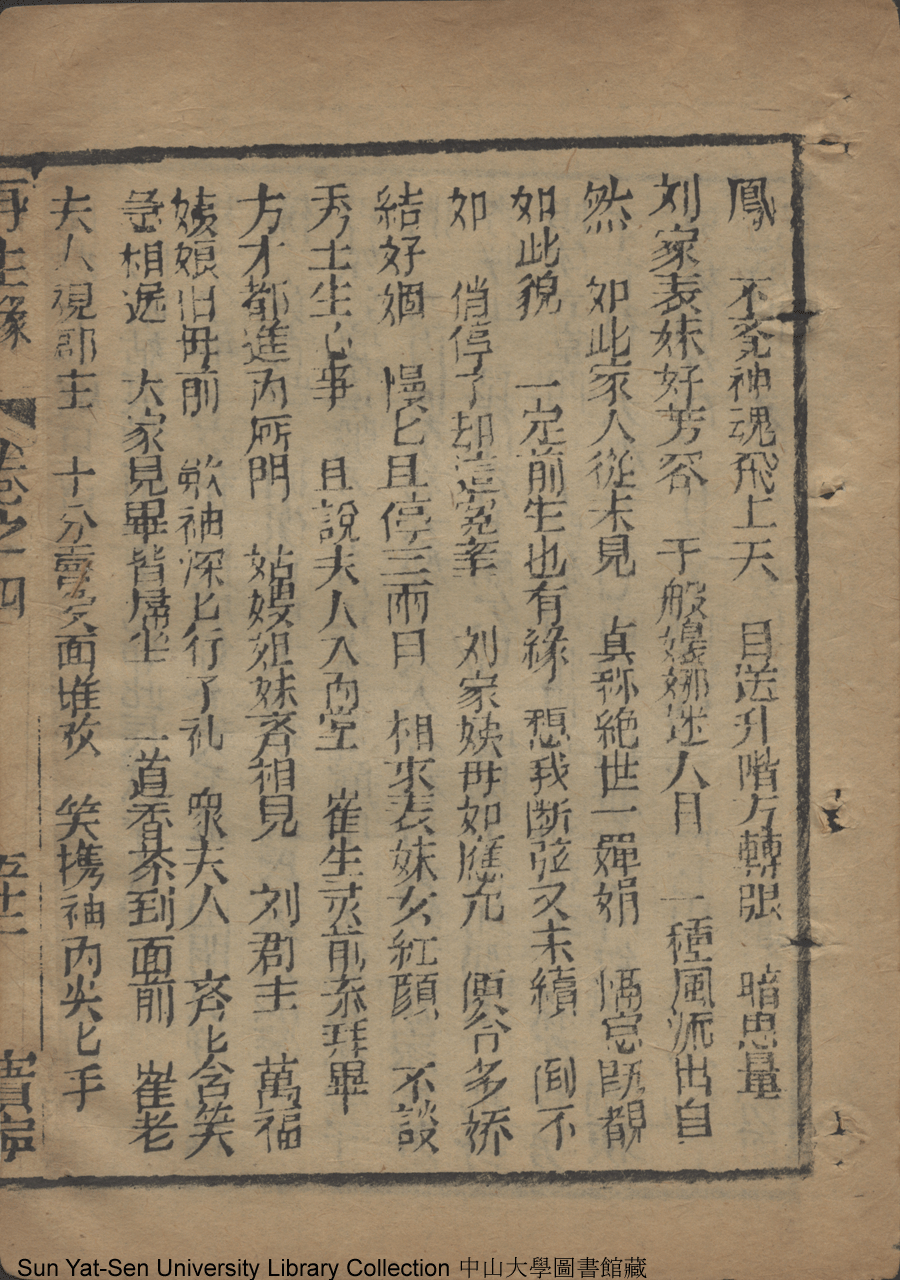 鳳　不覔神魂飛上天　目送升階方轉眼　暗思量
刘家表妹好芳容　千般嬝娜迷人目　一種風流出自
然　如此家人從未見　真称絶世一嬋娟　偶窓既覩
如此貌　一定前生也有緣　想我断弦又未續　倒不
如　俏停了却這寃牽　刘家姨母如應允　便合多娇
結好姻　慢匕且停三兩日　相求表妹女紅顔　不談
秀士生心事　且說夫人入內堂　崔生灵前泰拜畢
方才都進內所門　姑嫂姐妹斉相見　刘君主　萬福
姨娘旧母前　歛袖深匕行了礼　衆夫人　斉匕含笑
急相逃　大家見畢皆歸坐　一道香茶到面前　崔老
夫人視郡主　十分喜笑面堆孜　笑携袖內尖匕手
再生緣　卷之四　五十二　寳寧
Sun Yat-Sen University Library Collection 中山大學圖書館藏